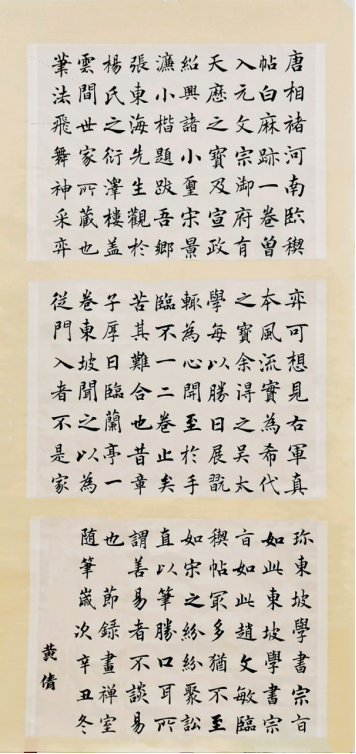 唐相褚河南臨稧
帖白麻跡一卷曾
入元文宗御府有
天歷之寶及宣政
紹興諸小璽宋景
濂小楷題跋吾鄉
張東海先生觀於
楊氏之衍澤樓盖
雲間世家所藏也
筆法飛舞神采弈
弈可想見右軍真
本風流實為希代
之寶余得之吴太
學每以勝日展翫
輒為心開至於手
臨不一二卷止矣
苦其難合也昔章
子厚日臨蘭亭一
卷東坡聞之以為
從門入者不是家
珎東坡學書宗旨
如此東坡學書宗
旨如此趙文敏臨
稧帖㝡多猶不至
如宋之紛紛聚訟
直以筆勝口耳所
謂善易者不談易
也 節録畫禪室
随筆歲次辛丑冬
黄倩